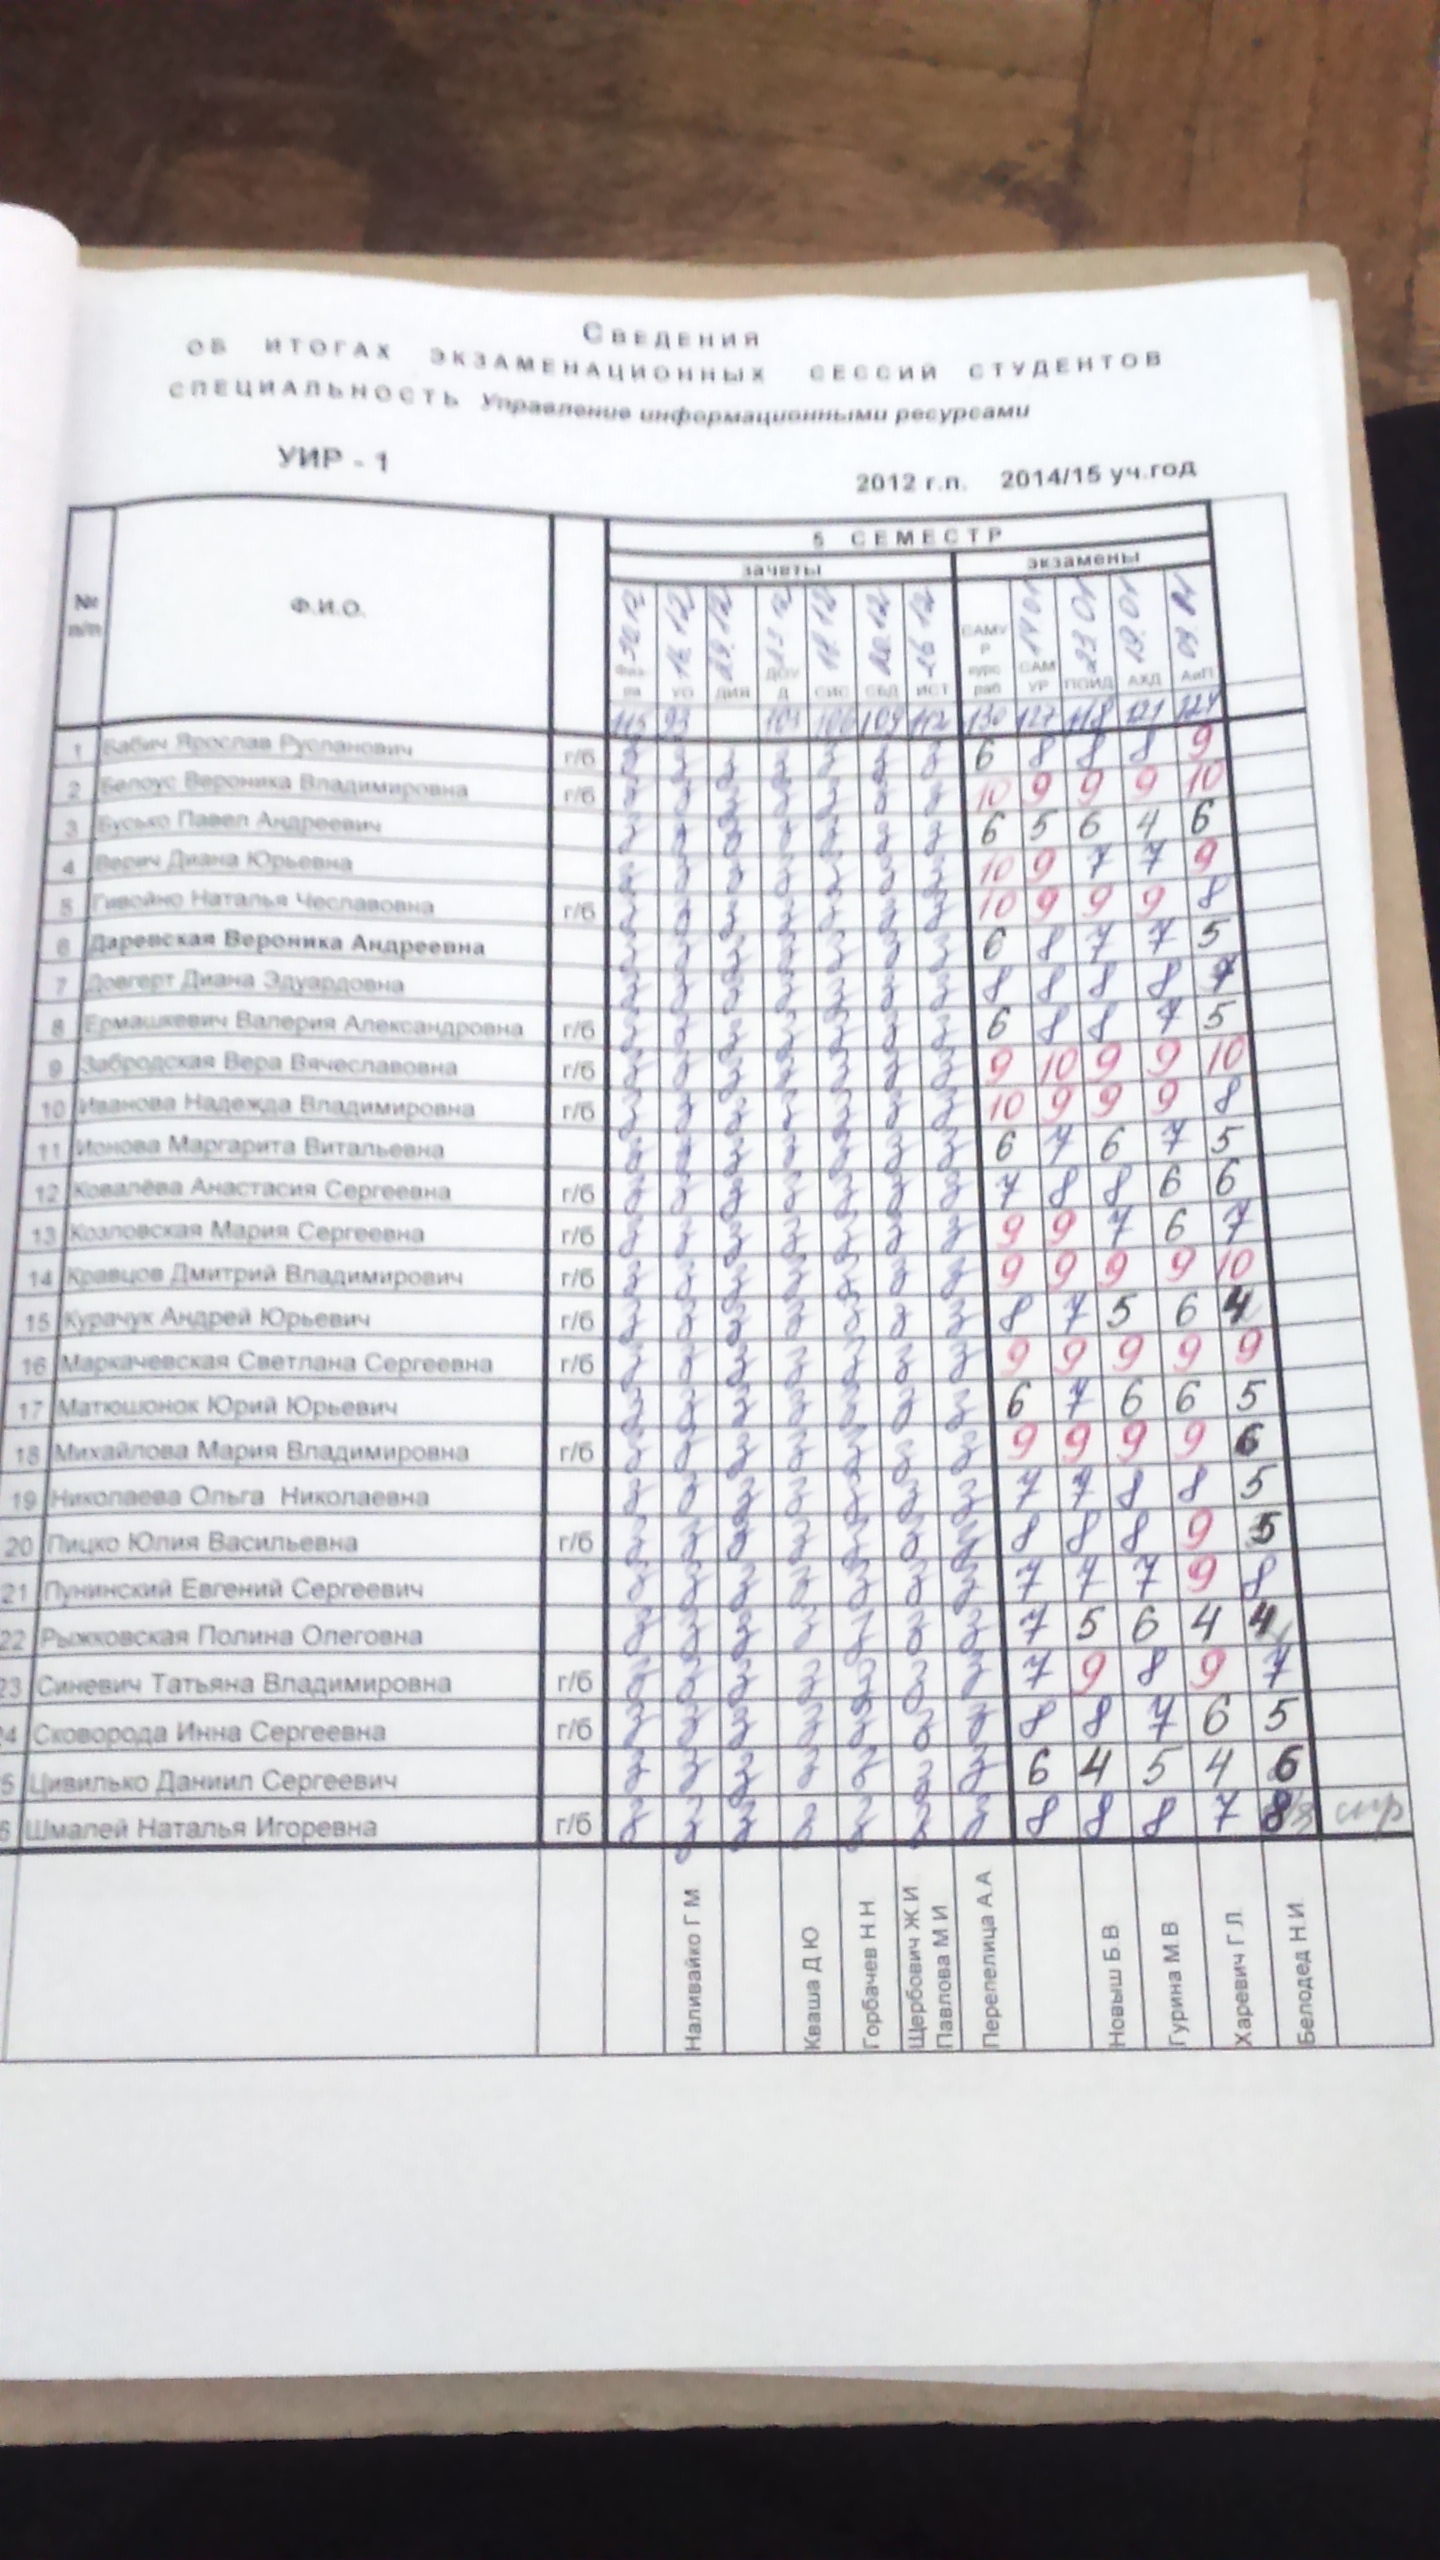 Сведения
об итогах экзаменационных сессий студентов
специальность Управление информационными ресурсами
УИР - 1
2012 г.п. 2014/15 уч.год
№ п/п Ф.И.О. 5 СЕМЕСТР
зачеты экзамены
УО ДИЯ ДОУ Д СИС СБД ИСТ САМУ Р курс раб САМ УР ПОИД АХД АиП
115 93 104 106 109 112 130 127 118 121 124
1 Бабич Ярослав Русланович г/б з з з з з з з 6 8 8 8 9
2 Белоус Вероника Владимировна г/б з з з з з з з 10 9 9 9 10
3 Бусько Павел Андреевич з з з з з з з 6 5 6 4 6
4 Верич Диана Юрьевна з з з з з з з 10 9 7 7 9
5 Гивойно Наталья Чеславовна г/б з з з з з з з 10 9 9 9 8
6 Даревская Вероника Андреевна з з з з з з з 6 8 7 7 5
7 Довгерт Диана Эдуардовна з з з з з з з 8 8 8 8 7
8 Ермашкевич Валерия Александровна г/б з з з з з з з 6 8 8 7 5
9 Забродская Вера Вячеславовна г/б з з з з з з з 9 10 9 9 10
10 Иванова Надежда Владимировна г/б з з з з з з з 10 9 9 9 8
11 Ионова Маргарита Витальевна з з з з з з з 6 7 6 7 5
12 Ковалёва Анастасия Сергеевна г/б з з з з з з з 7 8 8 6 6
13 Козловская Мария Сергеевна г/б з з з з з з з 9 9 7 6 7
14 Кравцов Дмитрий Владимирович г/б з з з з з з з 9 9 9 9 10
15 Курачук Андрей Юрьевич г/б з з з з з з з 8 7 5 6 4
16 Маркачевская Светлана Сергеевна г/б з з з з з з з 9 9 9 9 9
17 Матюшонок Юрий Юрьевич з з з з з з з 6 7 6 6 5
18 Михайлова Мария Владимировна г/б з з з з з з з 9 9 9 9 6
19 Николаева Ольга Николаевна з з з з з з з 7 7 8 8 5
20 Пицко Юлия Васильевна г/б з з з з з з з 8 8 8 9 5
21 Пунинский Евгений Сергеевич з з з з з з з 7 7 7 9 8
22 Рыжковская Полина Олеговна з з з з з з з 7 5 6 4 4
23 Синевич Татьяна Владимировна г/б з з з з з з з 7 9 8 9 7
4 Сковорода Инна Сергеевна г/б з з з з з з з 8 8 7 6 5
5 Цивилько Даниил Сергеевич з з з з з з з 6 4 5 4 6
6 Шмалей Наталья Игоревна г/б з з з з з з з 8 8 8 7 8
Наливайко Г М
Кваша Д Ю
Горбачев Н.Н.
Щербович Ж.И.
Павлова М И
Перепелица А.А
Новыш Б.В
Гурина М.В
Харевич Г Л.
Белодед Н.И.